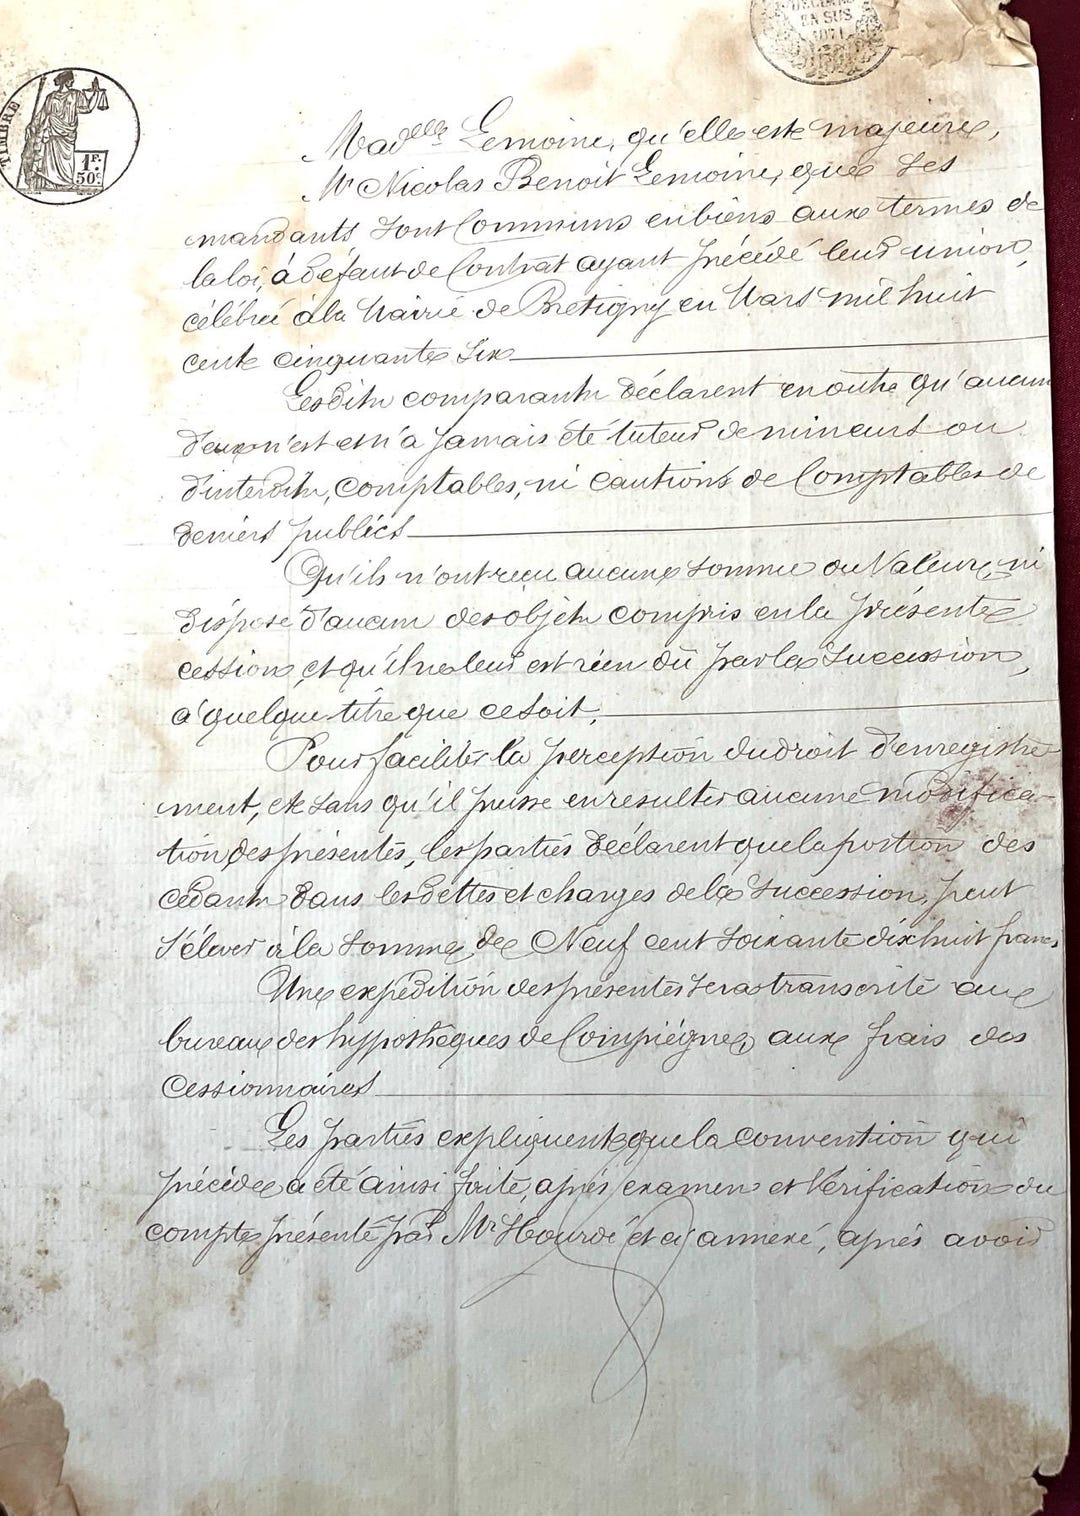 DÉCIMES
EN SUS
1871
TIMBRE
1F.
50c
Madelle Lemoine, qu'elle est majeure,
Mr Nicolas Benoit Lemoine, que ses
mandants sont Communs en biens aux termes de
la loi, à défaut de Contrat ayant précédé leur union,
célébrée à la Mairie de Bretigny en Mars mil huit
cent cinquante six
Lesdits comparants déclarent en outre qu'aucun
d'eux n'est et n'a jamais été tuteur de mineurs ou
d'interdits, comptables, ni cautions de Comptables de
deniers publics
Qu'ils n'ont reçu aucune somme ou Valeur, ni
disposé d'aucun des objets compris en la présente
cession, et qu'il ne leur est rien dû par la succession,
à quelque titre que ce soit.
Pour faciliter la perception du droit d'enregistre
ment, et sans qu'il puisse en resulter aucune modifica-
tion des présentes, les parties déclarent que la portion des
cédants dans les dettes et charges de la succession, peut
s'élever à la somme de Neuf cent soixante dix huit francs
Une expédition des présentes sera transcrite au
bureau des hypothèques de Compiègne, aux frais des
Cessionnaires
Les parties expliquent que la convention qui
précède a été ainsi faite, après examen et Vérification du
compte présenté par Mr Hourdé et ci annexé, après avoir